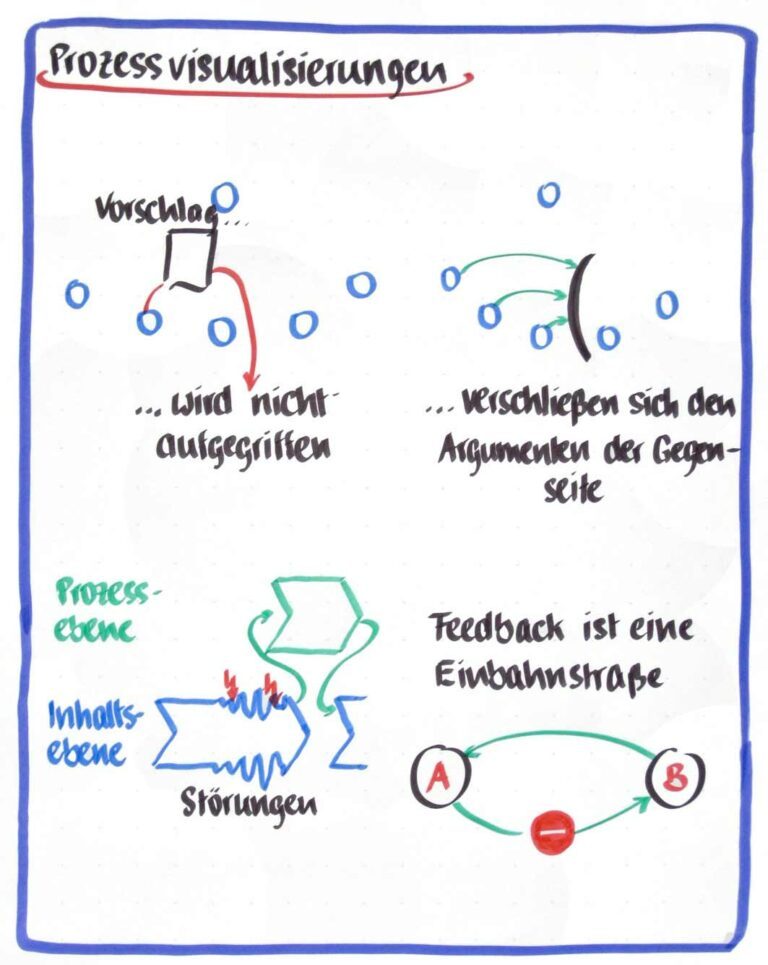 Prozessvisualisierungen
Vorschlag...
...wird nicht
aufgegriffen
...verschließen sich den
Argumenten der Gegen-
seite
Prozess-
ebene
Inhalts-
ebene
Störungen
Feedback ist eine
Einbahnstraße
A
B